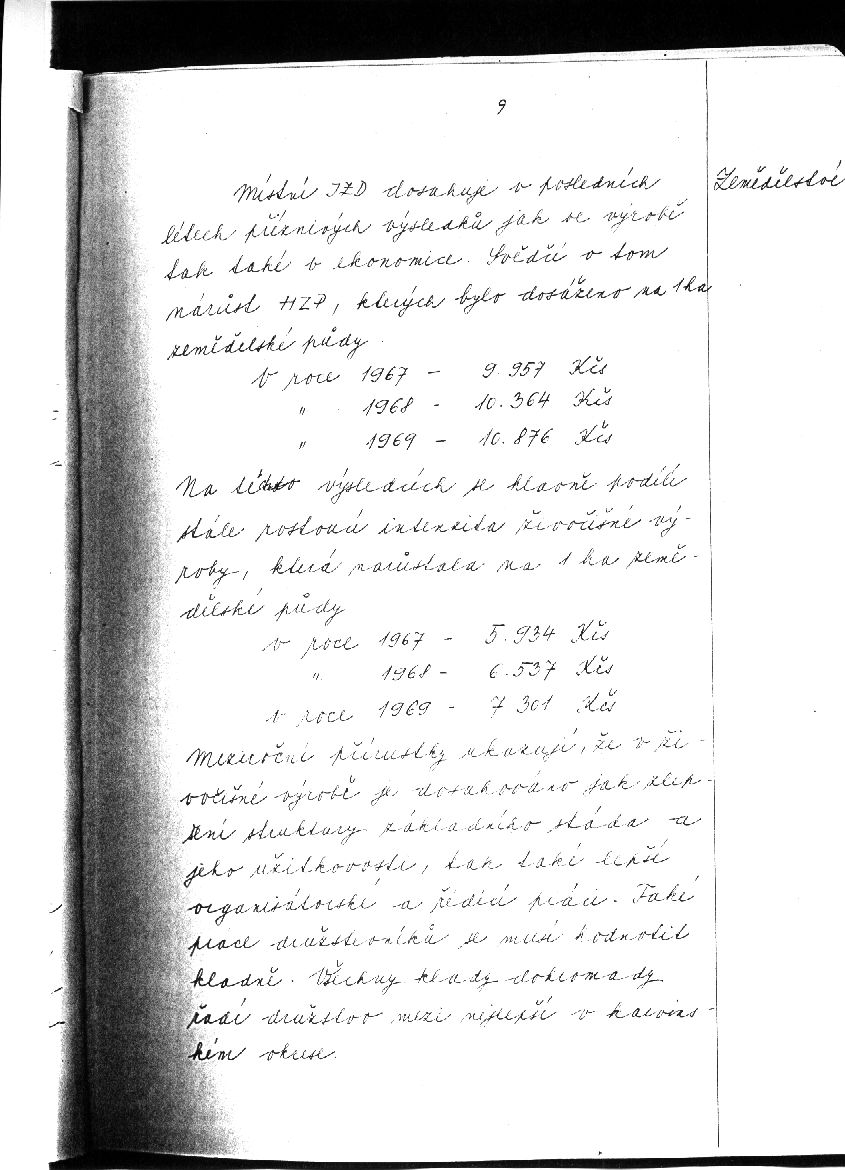 9
Zemědělství
Místní JZD dosahuje v posledních
létech příznivých výsledků jak ve výrobě
tak také v ekonomice. Svědčí o tom
nárůst HZP, kterých bylo dosaženo na 1 ha
zemědělské půdy.
V roce 1967 - 9.957 Kčs
" 1968 - 10.364 Kčs
" 1969 - 10.876 Kčs
Na těchto výsledcích se hlavně podílí
stále rostoucí intenzita živočišné vý-
roby, která narůstala na 1 ha země-
dělské půdy
v roce 1967 - 5.934 Kčs
" 1968 - 6.537 Kčs
v roce 1969 - 7 301 Kčs
Meziroční přírustky ukazují, že v ži-
vočišné výrobě je dosahováno jak zlep-
šení struktury základního stáda a
jeho užitkovosti, tak také lepší
organisátorské a řídící práci. Také
práce družstevníků se musí hodnotit
kladně. Všechny klady dohromady
řadí družstvo mezi nejlepší v karvins-
kém okrese.